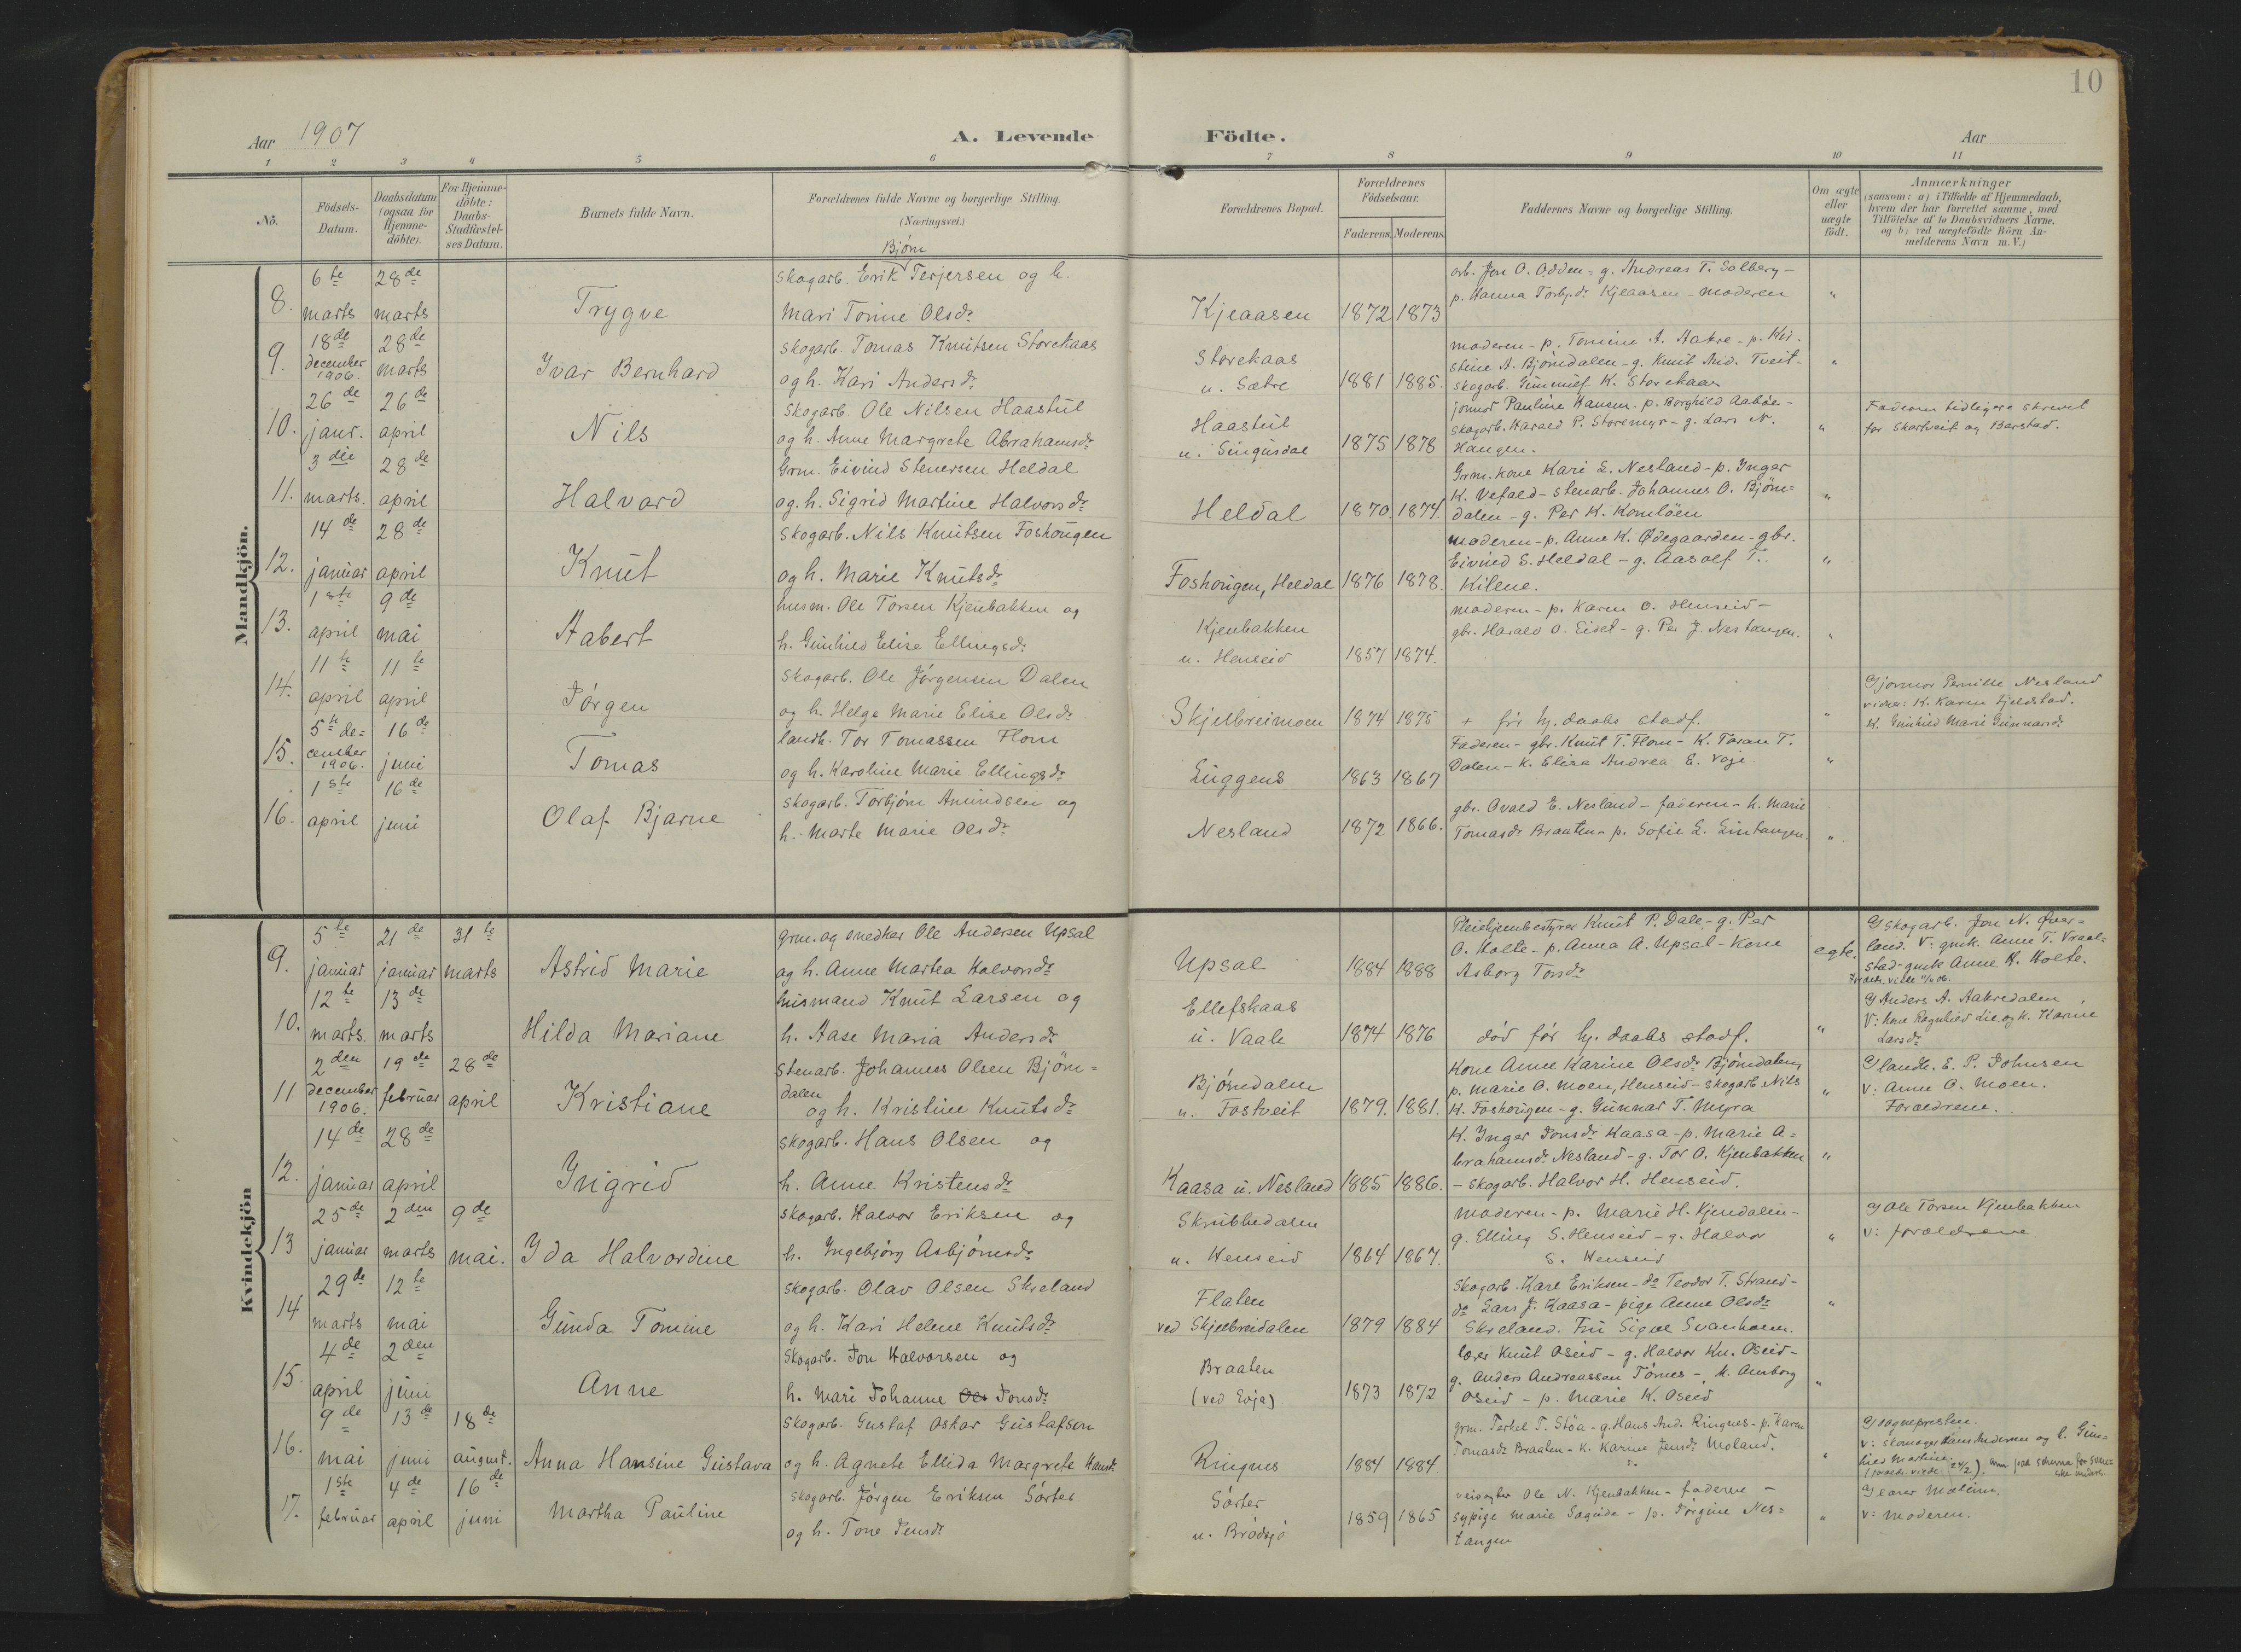 10
Aar 1907
A. Levende Födte.
Aar
1 2 3 4 5 6 7 8 9 10 11
No.
Födsels-Datum.
Daabsdatum (ogsaa for Hjemme-döbte).
For Hjemme-döbte: Daabs-Stadfæstel-ses Datum.
Barnets fulde Navn.
Forældrenes fulde Navne og borgerlige Stilling.
(Næringsvei.)
Forældrenes Bopæl.
Forældrenes Födselsaar.
Faderens. Moderens.
Faddernes Navne og borgerlige Stilling.
Om ægte eller uægte födt.
Anmærkninger
(saasom: a) i Tilfælde af Hjemmedaab,
hvem der har forrettet samme, med
Tilföielse af to Daabsvidners Navne.
og b) ved uægtefödte Börn An-
melderens Navn m.V.)
Mandkjön.
8. 6te marts 28de marts Trygve
Bjørn
skogarb. Erik Terjersen og h.
Mari Tomine Olsdr
Kjeaasen 1872 1873
arb. Jon O. Odden - g. Andreas T. Solberg -
p. Hanna Torbj.dr Kjeaasen - moderen "
9. 18de december 1906. 28de marts Ivar Bernhard
skogarb. Tomas Knutsen Storekaas
og h. Kari Andersdr
Storekaas
u. Sætre 1881 1885.
moderen - p. Tomine A. Aakre - p. Kir-
stine A. Bjørndalen - g. Knut And. Tveit -
skogarb. Gunnulf K. Storekaas "
10. 26de janr. 26de april Nils
skogarb. Ole Nilsen Haastul
og h. Anne Margrete Abrahamsdr
Haastul
u. Singusdal 1875 1878
jomfr Pauline Hansen. p. Borghild Aabøe -
skogarb. Harald P. Storemyr - g. Lars N.
Haugen. "
Faderen tidligere skrevet
for Skartveit og Berstad.
11. 3die marts. 28de april Halvard
Grm. Eivind Stenersen Heldal
og h. Sigrid Martine Halvorsdr
Heldal 1870. 1874.
Grm. kone Kari L. Nesland - p. Inger
K. Vefald - stenarb. Johannes O. Bjørn=
dalen - g. Per K. Komløen "
12. 14de januar 28de april Knut
skogarb. Nils Knutsen Foshaugen
og h. Marie Knutsdr
Foshaugen, Heldal 1876 1878.
moderen - p. Anne K. Ødegaarden - gbr.
Eivind S. Heldal - g. Aasolf T.
Kilene. "
13. 1ste april 9de mai Aabert
husm. Ole Torsen Kjenbakken og
h. Gunhild Elise Ellingsdr
Kjenbakken
u. Henseid 1857 1874.
moderen - p. Karen O. Henseid -
gbr. Harald O. Eidet - g. Per J. Nestangen. "
14. 11te april 11te april Jørgen
skogarb. Ole Jørgensen Dalen
og h. Helge Marie Elise Olsdr
Skjelbreimoen 1874 1875
+ før hj. daabs stadf. "
Gjormor Pernille Nesland
vidner: K. Karen Fjeldstad.
K. Gunhild Marie Gunnarsdr
15. 5te december 1906. 16de juni Tomas
landh. Tor Tomassen Flom
og h. Karoline Marie Ellingsdr
Luggens 1863 1867
Faderen - gbr. Knut T. Flom - K. Taran T.
Dalen - K. Elise Andrea E. Vaje "
16. 1ste april 16de juni Olaf Bjarne
skogarb. Torbjørn Amundsen og
h. Marte Marie Olsdr
Nesland 1872 1866.
gbr. Ovald E. Nesland - faderen - h. Marie
Tomasdr Braaten - p. Sofie L. Lintangen. "
Kvindekjön
9. 5te januar 21de januar 31te marts Astrid Marie
grm. og snedker Ole Andersen Upsal
og h. Anne Martea Halvorsdr
Upsal 1884 1888
Pleiehjembestyrer Knut P. Dale - g. Per
O. Holte - p. Anna A. Upsal - Kone
Asborg Torsdr egte.
G skogarb. Jon N. Øver=
land. V: gmk. Anne T. Vraal=
stad - gmk Anne K. Holte.
10. 12te marts. 13de marts Hilda Mariane
husmand Knut Larsen og
h. Aase Maria Andersdr
Ellefskaas
u. Vaale 1874 1876
død før hj. daabs stadf. "
G Anders A. Aakredalen
V: kone Ragnhild Lie og K. Karine
Larsdr
11 2den december 1906. 19de februar 28de april Kristiane
stenarb. Johannes Olsen Bjørn=
dalen
og h. Kristine Knutsdr
Bjørndalen
u. Fostveit 1879. 1881.
Kone Anne Karine Olsdr Bjørndalen,
p. Marie O. Moen, Henseid - skogarb. Nils
K. Foshaugen - g. Gunnar T. Myra "
G landh. E. P. Johnsen
V: Anne O. Moen.
Forældrene.
12. 14de januar 28de april Ingrid
skogarb. Hans Olsen og
h. Anne Kristensdr
Kaasa u. Nesland 1885 1886.
K. Inger Jonsdr Kaasa - p. Marie A=
brahamsdr Nesland - g. Tor O. Kjenbakken
- skogarb. Halvor H. Henseid. "
13 25de januar 2den marts 9de mai. Ida Halvordine
skogarb. Halvor Eriksen og
h. Ingebjørg Asbjørnsdr
Skrubbedalen
u. Henseid 1864 1867.
moderen - p. Marie H. Kjendalen -
g. Elling S. Henseid - g. Halvor
S. Henseid "
G Ole Torsen Kjenbakken
V: forældrene
14 29de marts 12te mai Gunda Tomine
skogarb. Olav Olsen Skreland
og h. Kari Helene Knutsdr
Flaten
ved Skjelbreidalen 1879 1884
Skogarb. Karl Eriksen - do Teodor T. Strand -
do Lars J. Kaasa - pige Anne Olsdr
Skreland. Fru Signe Svanholm. "
15. 4de april 2den juni Anne
Skogarb. Jon Halvorsen og
h. Mari Johanne Ols Jonsdr
Braaten
(ved Evja) 1873 1872
lærer Knut Oseid - g. Halvor Kn. Oseid -
g. Anders Andreassen Tørnes - k. Amborg
Oseid - p. Marie K. Oseid "
16. 9de mai 13de juni 18de august. Anna Hansine Gustava
skogarb. Gustaf Oskar Gustafson
og h. Agnete Ellida Margrete Hansdr
Ringnes 1884 1884.
grm. Terkel T. Støa - g. Hans And. Ringnes - p. Karen
Tomasdr Braaten - K. Karine Jensdr Moland. "
G sognepresten.
V: skomager Hans Andersen og h. Gun=
hild Martine.
17. 1ste februar 4de april 16de juni Martha Pauline
skogarb. Jørgen Eriksen Sørter
og h. Tone Jensdr
Sørter
u. Brødsjø 1859 1865
veivogter Ole N. Kjenbakken - faderen -
sypige Marie Sagudo - p. Jørgine Nes=
tangen "
G lærer Mæleim.
V: moderen.